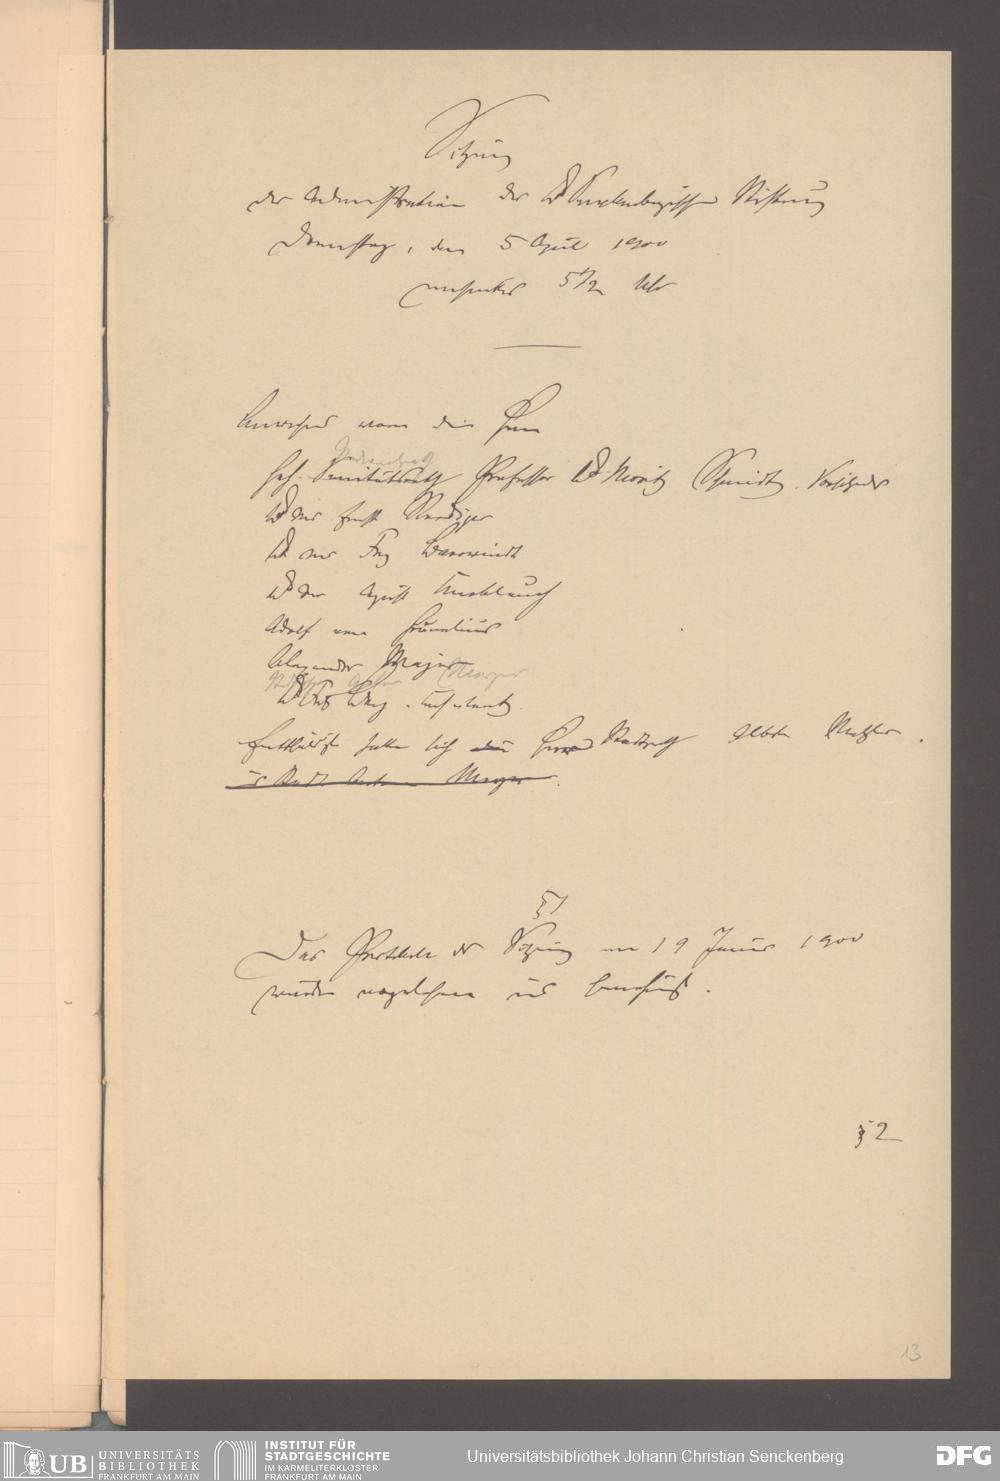 Sitzung
der Administration der Dr Senckenbergischen Stiftung
Donnerstag, den 5 April 1900
nachmittags 5 1/2 Uhr
Anwesend waren die Herren
Geh. Sanitätsrath Professor Dr. Moritz Schmidt. Vorsitzender
Dr med Ernst Roediger
Dr med Fritz Bärwindt
Dr med August Knoblauch
Adolf von Grunelius
Alexander Majer
Stadtrath Anton Meyer
Dr Fritz Berg. Consulent.
Entschuldigt hatte sich Herr Stadtrath Albert Metzler.
und Stadtr Anton Meyer.
§ 1
Das Protokoll der Sitzung vom 19 Januar 1900
wurde vorgelesen und genehmigt.
§ 2
13
UB UNIVERSITÄTS
BIBLIOTHEK
FRANKFURT AM MAIN
INSTITUT FÜR
STADTGESCHICHTE
IM KARMELITERKLOSTER
FRANKFURT AM MAIN
Universitätsbibliothek Johann Christian Senckenberg
DFG